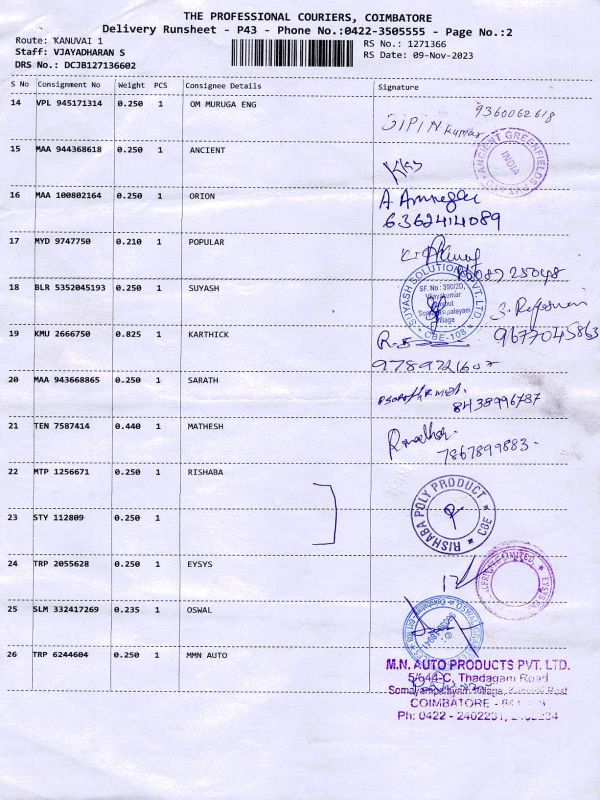 THE PROFESSIONAL COURIERS, COIMBATORE
Delivery Runsheet - P43 - Phone No.:0422-3505555 - Page No.:2
Route: KANUVAI 1
Staff: VJAYADHARAN S
DRS No.: DCJB127136602
RS No.: 1271366
RS Date: 09-Nov-2023
S No Consignment No Weight PCS Consignee Details Signature
14 VPL 945171314 0.250 1 OM MURUGA ENG
9360062618
SIPIN Kumar
15 MAA 944368618 0.250 1 ANCIENT
ANCIENT GREENFIELDS
INDIA
16 MAA 100802164 0.250 1 ORION
6362414089
17 MYD 9747750 0.210 1 POPULAR
18 BLR 5352045193 0.250 1 SUYASH
SUYASH SOLUTIONS PVT. LTD
SF. No : 390/2D,
Vijayakumar
Village
CBE-108
9677045863
19 KMU 2666750 0.825 1 KARTHICK
20 MAA 943668865 0.250 1 SARATH
8438996787
21 TEN 7587414 0.440 1 MATHESH
7867899883-
22 MTP 1256671 0.250 1 RISHABA
RISHABA POLY PRODUCT
CBE
23 STY 112809 0.250 1
24 TRP 2055628 0.250 1 EYSYS
25 SLM 332417269 0.235 1 OSWAL
OSWAL
26 TRP 6244604 0.250 1 MMN AUTO
M.N. AUTO PRODUCTS PVT. LTD.
5/644-C, Thadagam Road
Somayampalayam Village, Kanuvai Post
COIMBATORE -
Ph: 0422 - 2402231,